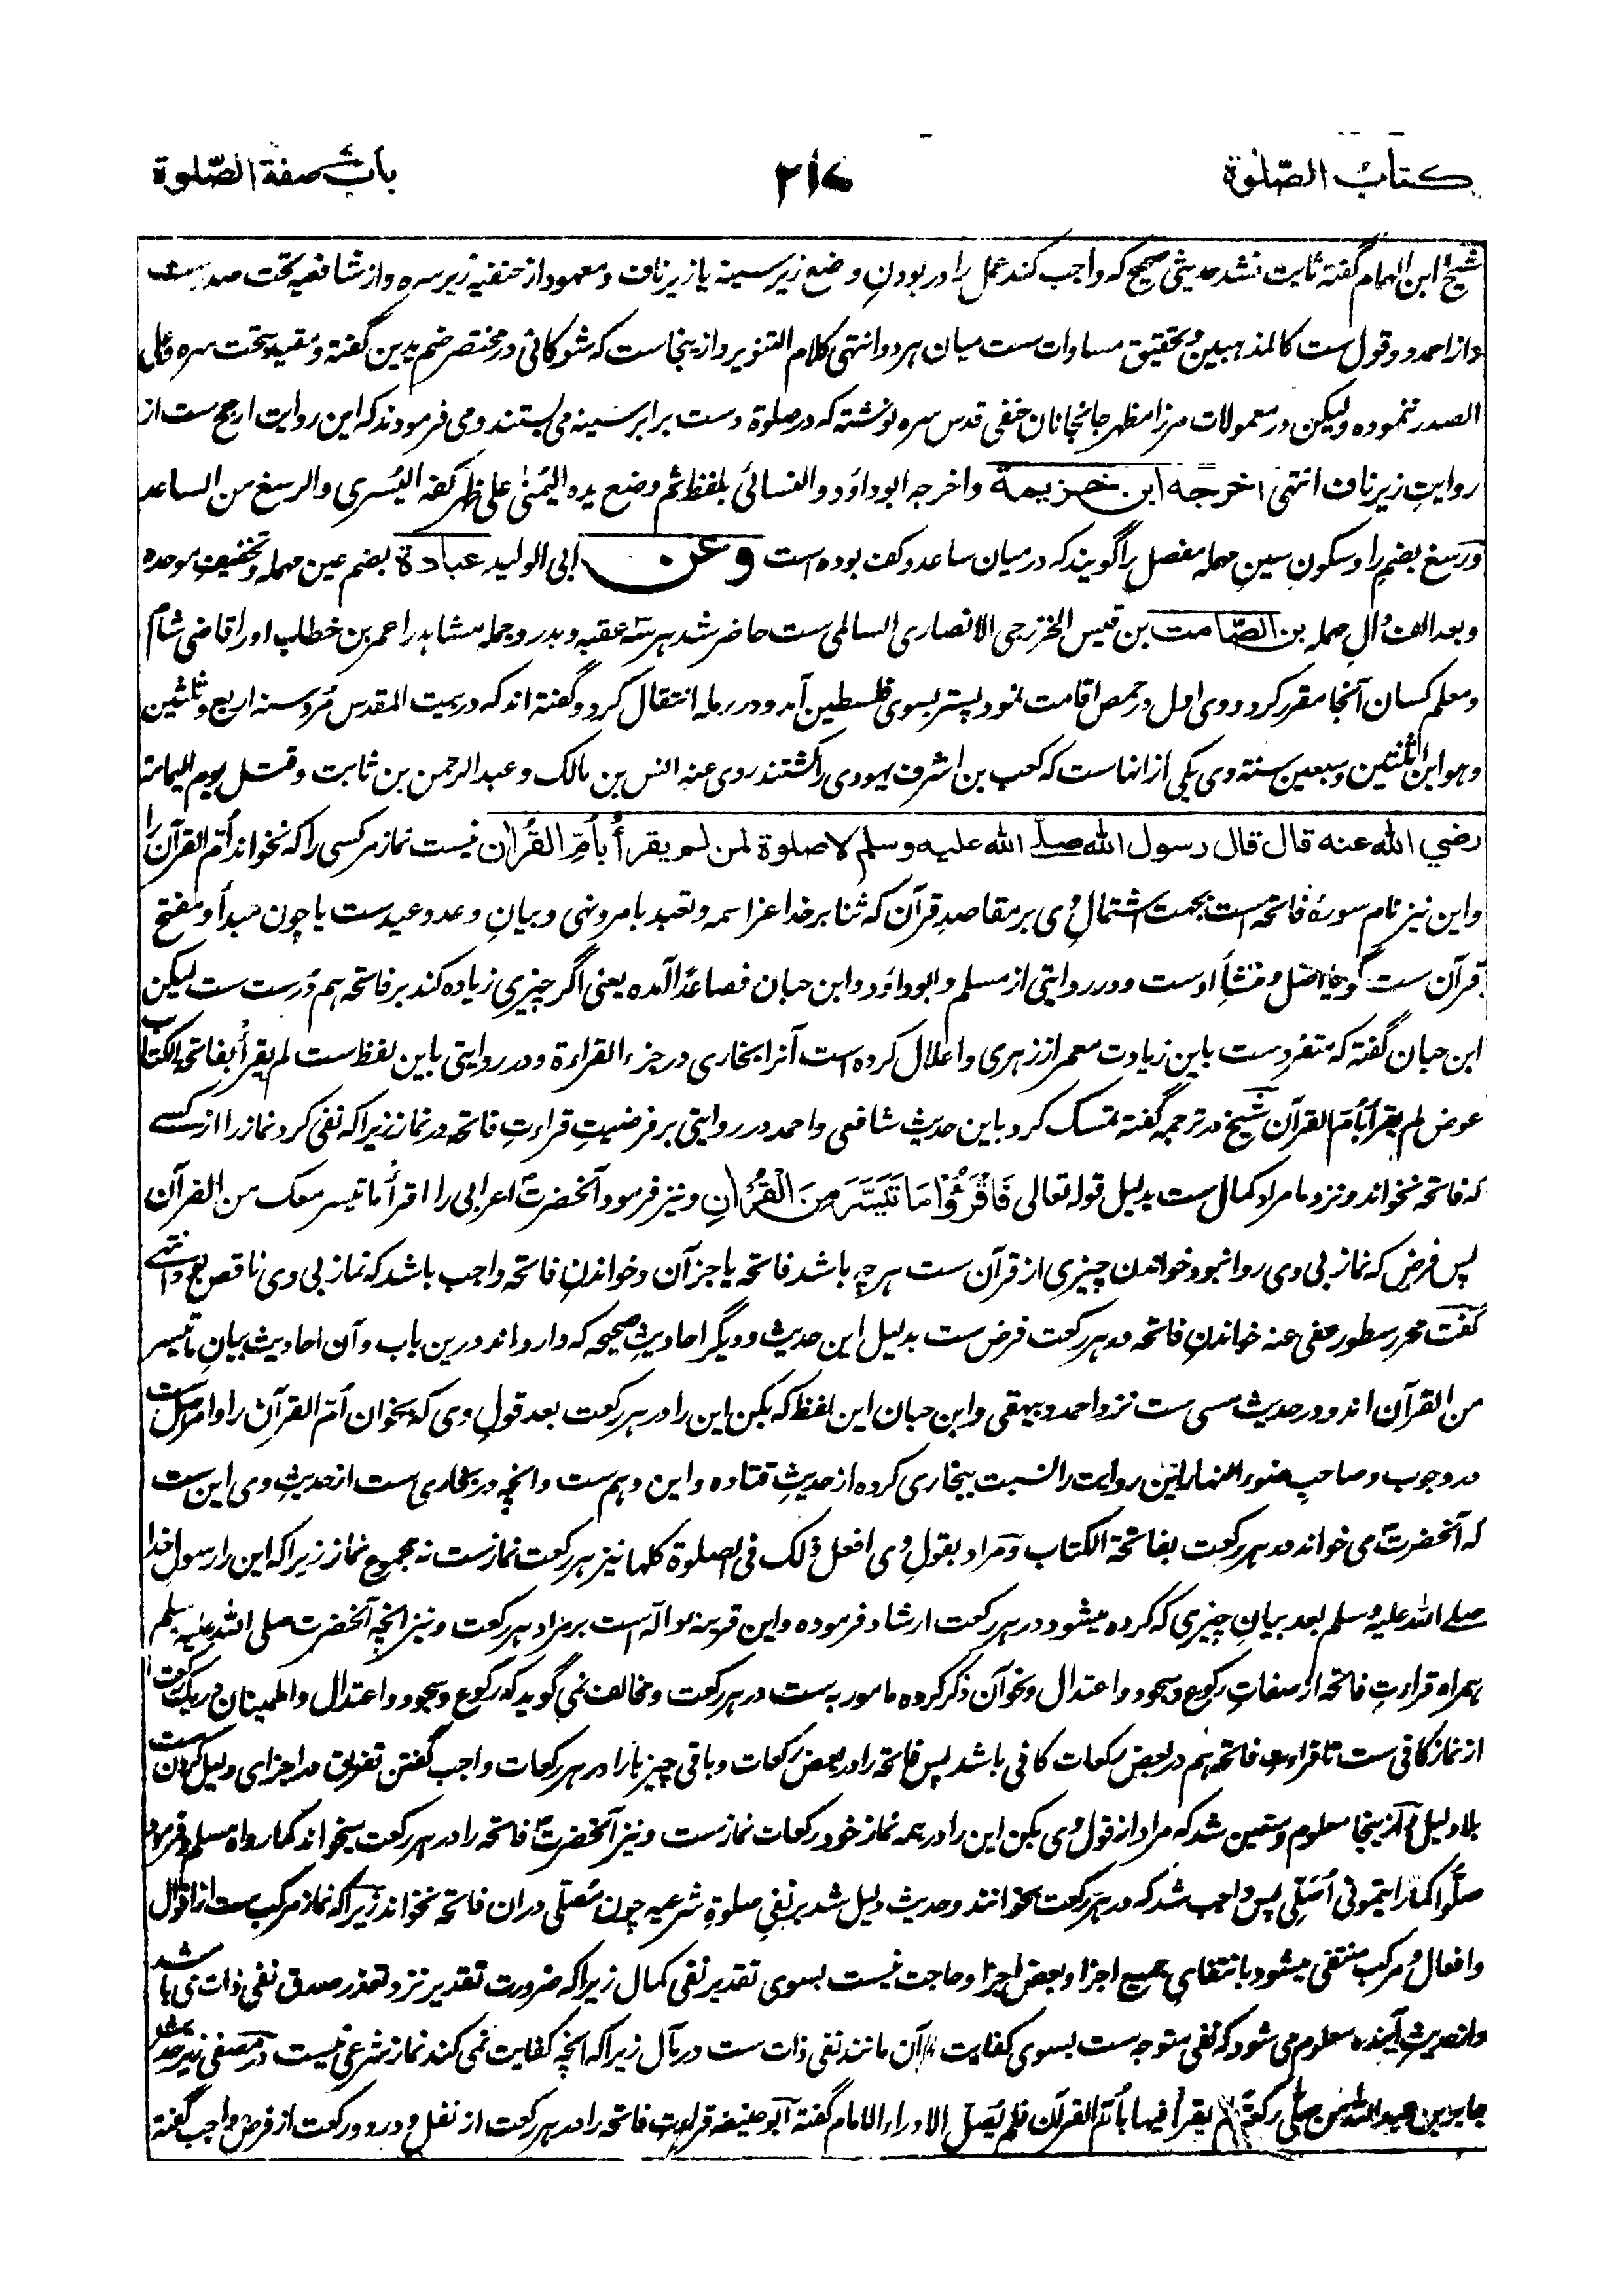 کتاب الصّلوٰة
۲۱۷
باب صفة الصّلوة
شیخ ابن الهمام گفته ثابت نشد حدیثی صحیح که واجب کند عمل را در بودنِ وضع زیر سینه یا زیر ناف و معهود از حنفیه زیر سره و از شافعیه تحت صدرست
و از احمد دو قول ست کالمذهبین و تحقیق مساوات ست میان هر دو انتهی کلام التنویر و ازینجاست که شوکانی در مختصر ضم یدین گفته و مقید بتحت سره و علی
الصدر ننموده ولیکن در معمولات مرزا مظهر جانجانان حنفی قدس سره نوشته که در صلوة دست برابر سینه می بستند و می فرمودند که این روایت ارجح ست از
روایتِ زیر ناف انتهی اخرجه ابن خزیمة و اخرجه ابوداؤد والنسائی بلفظ ثم وضع یده الیُمنیٰ علی ظهر کفه الیُسری والرسغ من الساعد
ورسغ بضم را و سکون سینِ مهمله مفصل را گویند که در میان ساعد و کف بوده است وعن ابی الولید عبادة بضم عین مهمله و تخفیف موحده
و بعد الف دالِ مهمله بن الصّامت بن قیس الخزرجی الانصاری السالمی ست حاضر شد هر سّه عقبه و بدر و جمله مشاهد را عمر بن خطاب او را قاضی شام
و معلم کسان آنجا مقرر کرد و وی اول در حمص اقامت نمود پستر بسوی فلسطین آمد و در رمله انتقال کرد و گفته اند که در بیت المقدس مُرد سنه اربع و ثلثین
وهو ابن اثنتین و سبعین سنة وی یکی از انهاست که کعب بن اشرف یهودی را کشتند روی عنه انس بن مالک و عبد الرحمن بن ثابت و قتل یوم الیمامة
رضي الله عنه قال قال رسول الله صلے الله علیه وسلم لا صلوة لمن لم یقرأ بأمّ القُرآن نیست نماز مر کسی را که نخواند اُمّ القرآن را
و این نیز نام سورهٔ فاتحه است بجهت اشتمالِ وی بر مقاصدِ قرآن که ثنا بر خدا عز اسمه و تعبد بامر و نهی و بیانِ وعد و وعیدست یا چون مبدأ و مفتح
قرآن ست گویا اصل و منشأ اوست و در روایتی از مسلم و ابوداؤد و ابن حبان فصاعدًا آمده یعنی اگر چیزی زیاده کند بر فاتحه هم دُرست ست لیکن
ابن حبان گفته که متفردست باین زیادت معمر از زهری و اعلال کرده است آنرا بخاری در جزء القراءة و در روایتی باین لفظ ست لم یقرأ بفاتحة الکتاب
عوض لم یقرأ بأمّ القرآن شیخ در ترجمه گفته تمسک کرد باین حدیث شافعی و احمد در روایتی بر فرضیتِ قراءتِ فاتحه در نماز زیرا که نفی کرد نماز را از کسے
که فاتحه نخواند و نزد ما مراد کمال ست بدلیل قوله تعالی فَاقْرَءُوْا مَا تَیَسَّرَ مِنَ الْقُرْاٰنِ و نیز فرمود آنحضرتؐ اعرابی را اقرأ ما تیسر معک من القرآن
پس فرض که نماز بی وی روا نبود خواندن چیزی از قرآن ست هر چه باشد فاتحه یا جز آن و خواندنِ فاتحه واجب باشد که نماز بی وی ناقص بود انتهے
گفت محررِ سطور عفی عنه خواندنِ فاتحه در هر رکعت فرض ست بدلیل این حدیث و دیگر احادیثِ صحیحه که وارد اند درین باب و آن احادیث بیانِ ما تیسر
من القرآن اند و در حدیث مسی ست نزد احمد و بیهقی و ابن حبان این لفظ که بکن این را در هر رکعت بعد قولِ وی که بخوان اُمّ القرآن را و امر اصل ست
در وجوب و صاحب ضوء النهار این روایت را نسبت ببخاری کرده از حدیثِ قتاده و این وهم ست و انچه در بخاری ست از حدیثِ وی این ست
که آنحضرتؐ می خواند در هر رکعت بفاتحة الکتاب و مراد بقولِ وی افعل ذٰلک فی الصلوة کلها نیز هر رکعت نمازست نه مجموع نماز زیرا که این را رسول خدا
صلے الله علیه وسلم بعد بیانِ چیزی که کرده میشود در هر رکعت ارشاد فرموده و این قرینهٔ دالّه است بر مراد هر رکعت و نیز انچه آنحضرت صلی الله علیه وسلم
همراه قراءتِ فاتحه از صفاتِ رکوع و سجود و اعتدال و نحوآن ذکر کرده مامور به ست در هر رکعت و مخالف نمی گوید که رکوع و سجود و اعتدال و اطمینان در یک رکعت
از نماز کافی ست تا قراءت فاتحه هم در بعض رکعات کافی باشد پس فاتحه را در بعض رکعات و باقی چیزها را در هر رکعات واجب گفتن تفریق در اجزای دلیل کردن ست
بلا دلیل و ازینجا معلوم و متیقن شد که مراد از قول وی بکن این را در همه نماز خود رکعات نمازست و نیز آنحضرتؐ فاتحه را در هر رکعت میخواند کما رواه مسلم و فرمود
صلّوا کما رایتمونی اُصَلِّی پس واجب شد که در هر رکعت بخوانند و حدیث دلیل شد بر نفیِ صلوةِ شرعیه چون مُصلّی دران فاتحه نخواند زیرا که نماز مرکب ست از اقوال
و افعال و مرکب منتفی میشود بانتفای جمیع اجزا و بعض اجزا و حاجت نیست بسوی تقدیر نفی کمال زیرا که ضرورت تقدیر نزد تعذر صدق نفی ذات می باشد
و از حدیثِ آینده معلوم می شود که نفی متوجه ست بسوی کفایت و آن مانند نفی ذات ست در مآل زیرا که انچه کفایت نمی کند نماز شرعی نیست در مصفی زیر حدیث
جابر بن عبد الله من صلّی رکعةً لم یقرأ فیها باُمّ القرآن فلم یُصلِّ الا وراء الامام گفته ابو حنیفه قراءت فاتحه را در هر رکعت از نفل و در دو رکعت از فرض واجب گفته